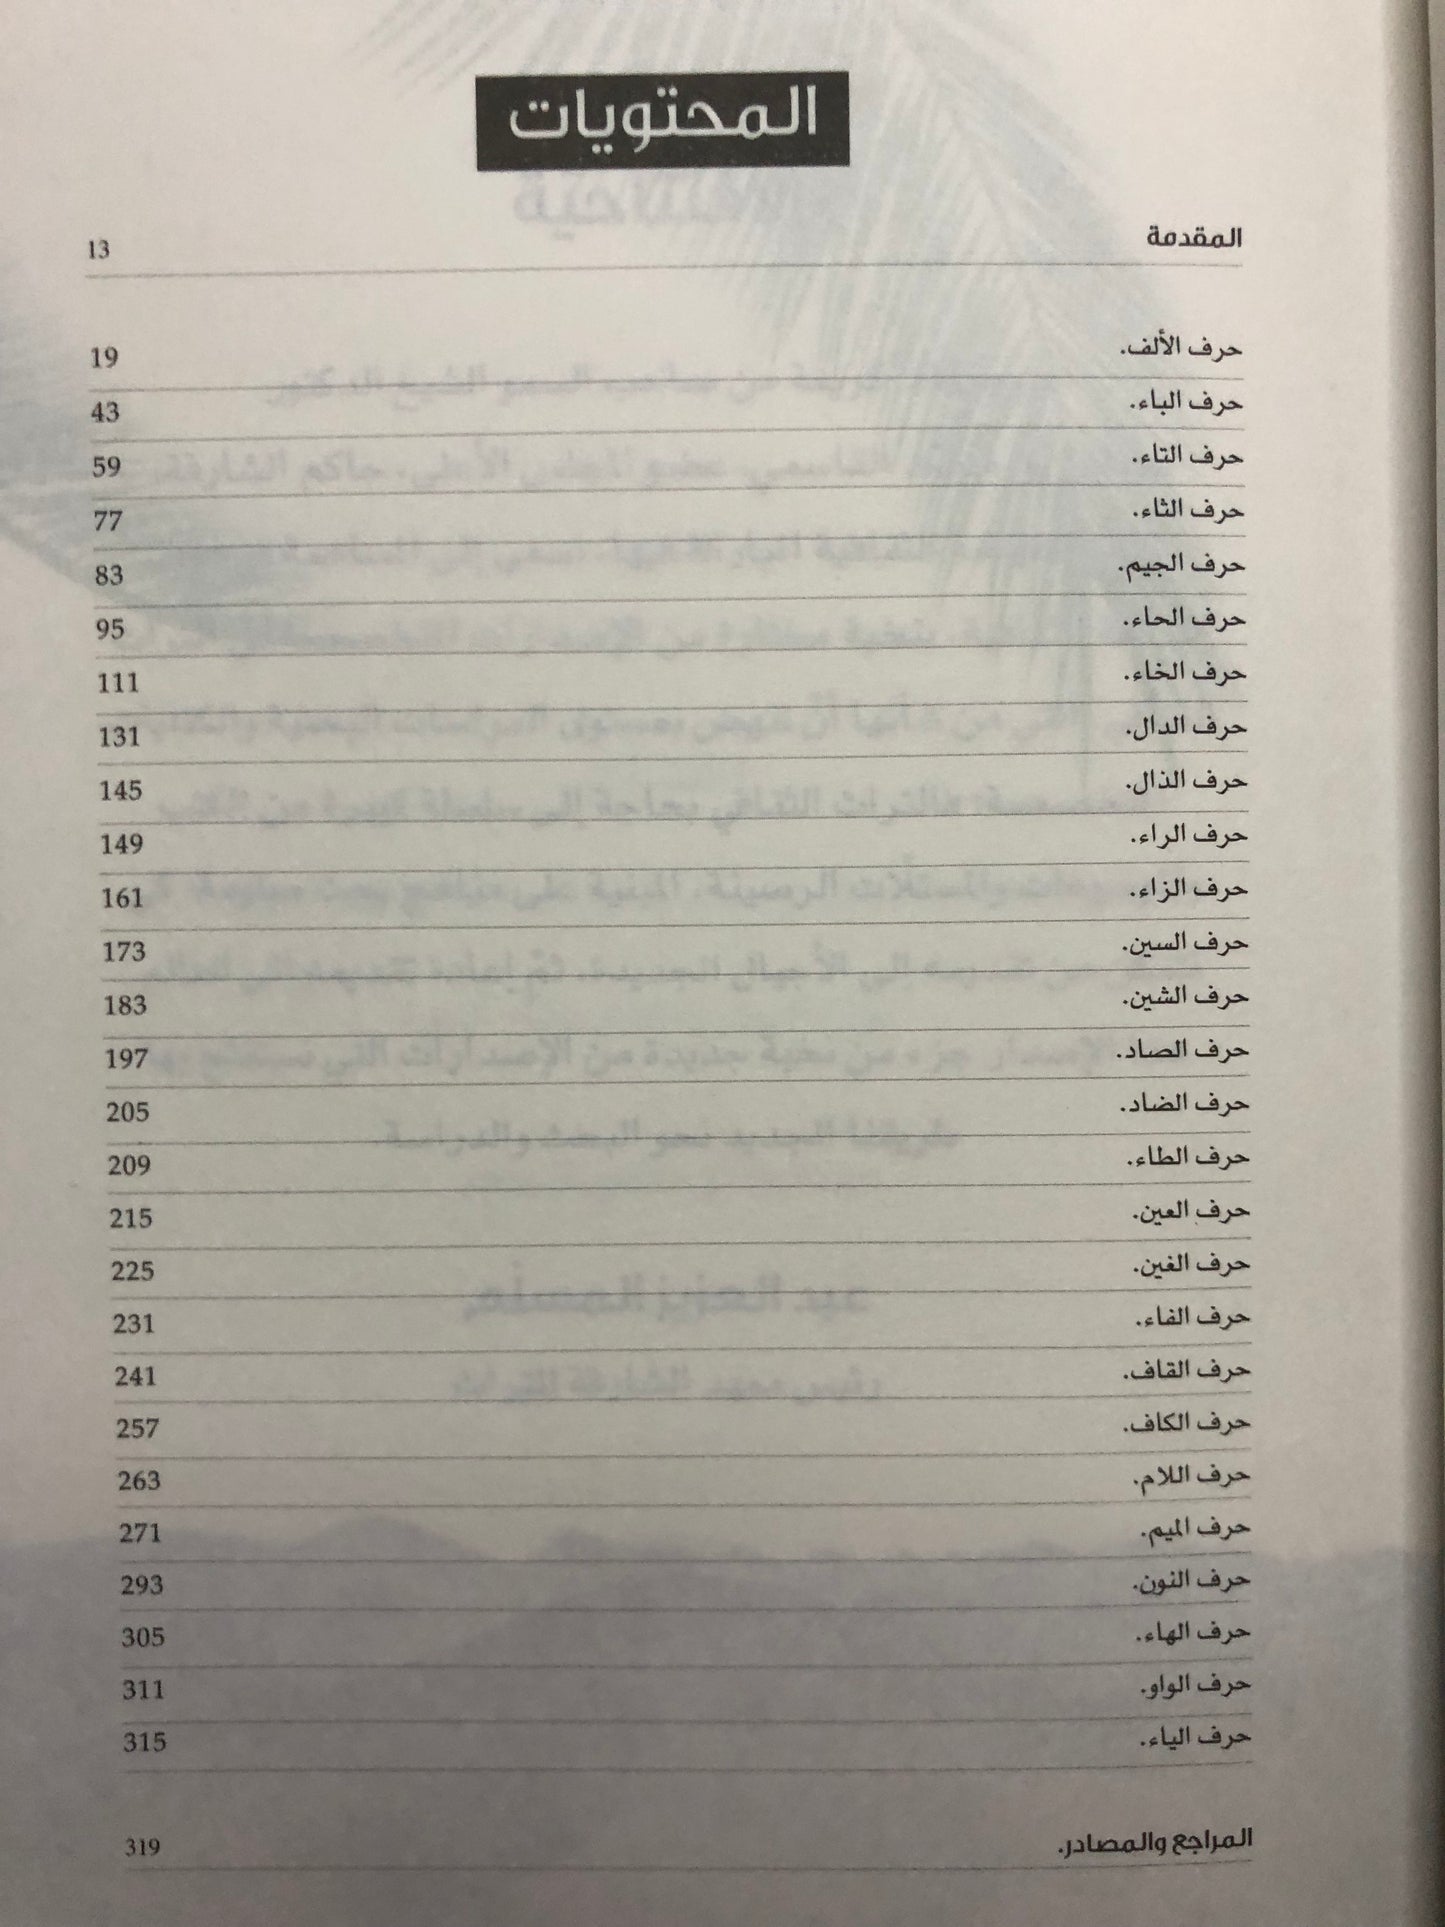 المحتويات
المقدمة 13
حرف الألف. 19
حرف الباء. 43
حرف التاء. 59
حرف الثاء. 77
حرف الجيم. 83
حرف الحاء. 95
حرف الخاء. 111
حرف الدال. 131
حرف الذال. 145
حرف الراء. 149
حرف الزاء. 161
حرف السين. 173
حرف الشين. 183
حرف الصاد. 197
حرف الضاد. 205
حرف الطاء. 209
حرف العين. 215
حرف الغين. 225
حرف الفاء. 231
حرف القاف. 241
حرف الكاف. 257
حرف اللام. 263
حرف الميم. 271
حرف النون. 293
حرف الهاء. 305
حرف الواو. 311
حرف الياء. 315
المراجع والمصادر. 319